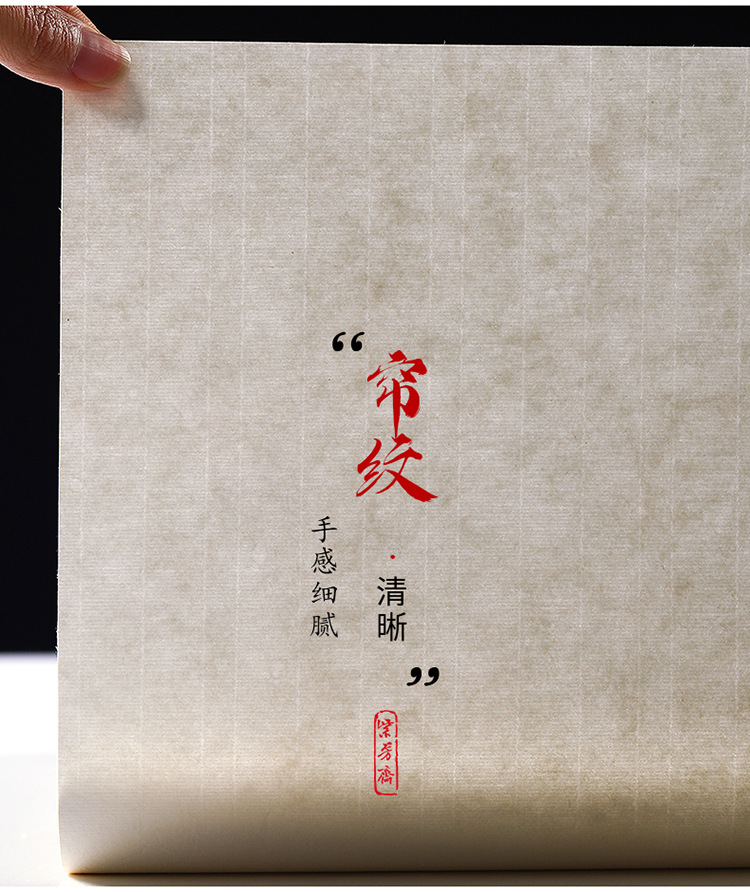 “帘纹·清晰”
手感细腻
紫芳斋